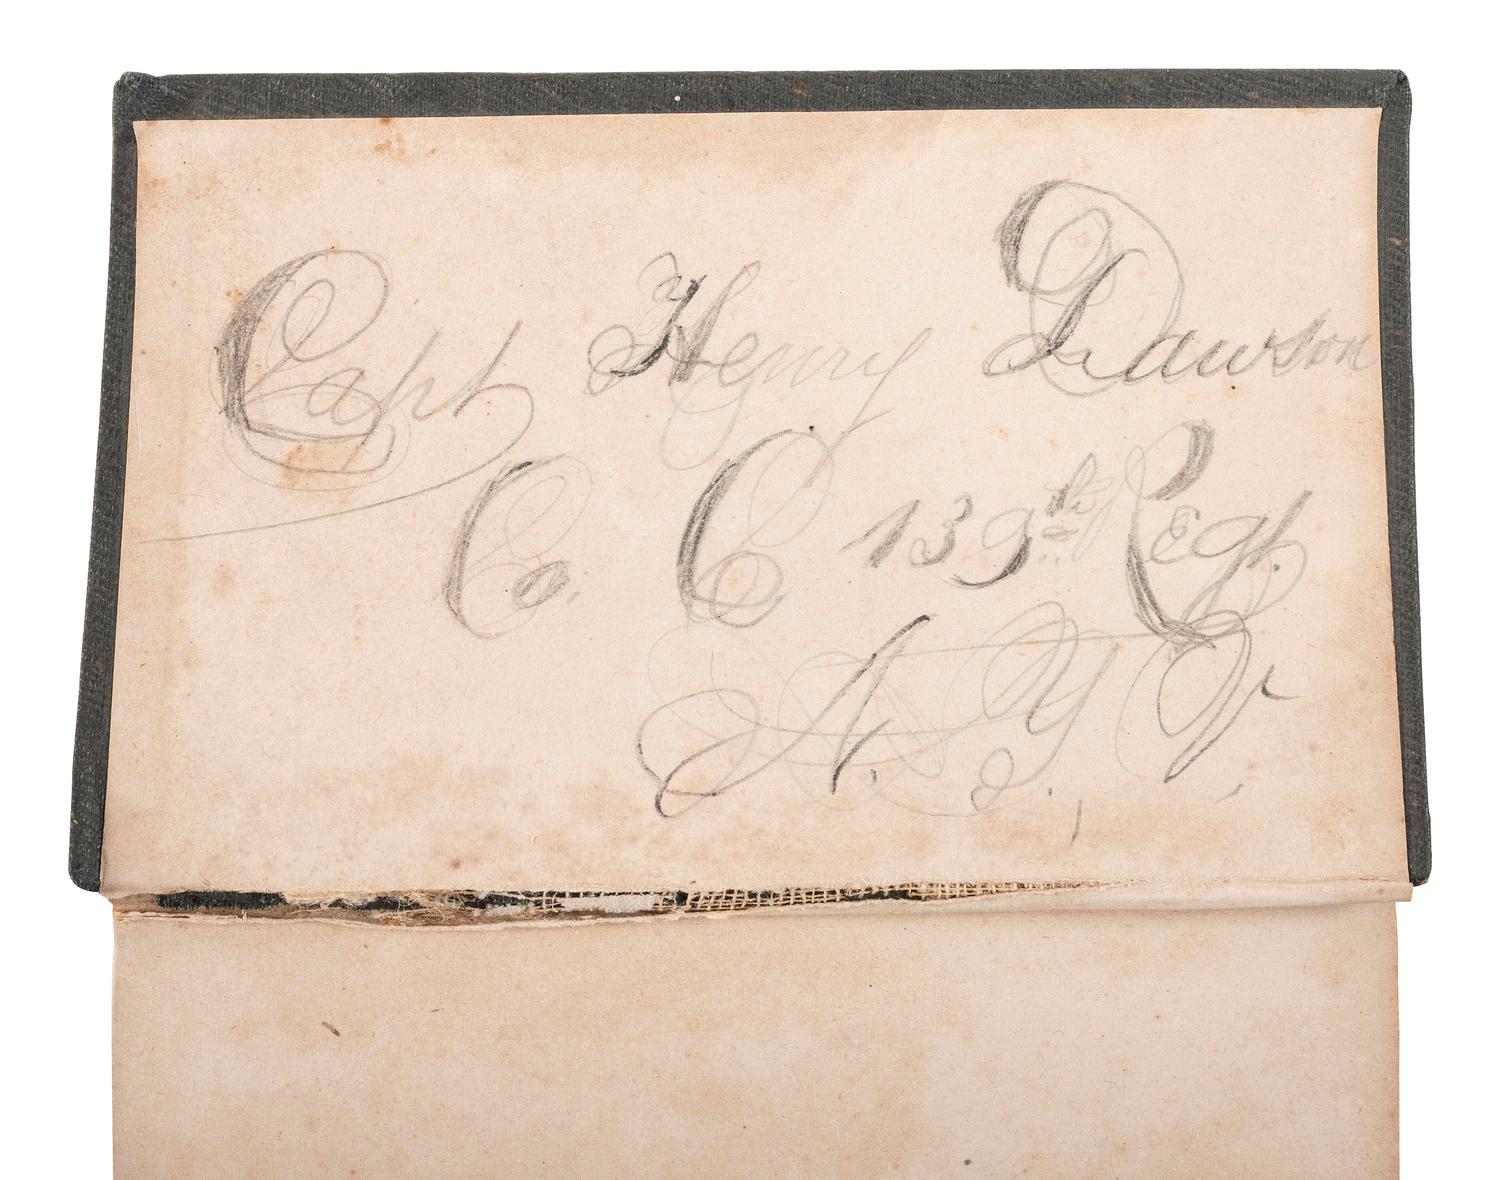 Capt Henry Dawson
Co. C 139th Regt.
N. Y. V.